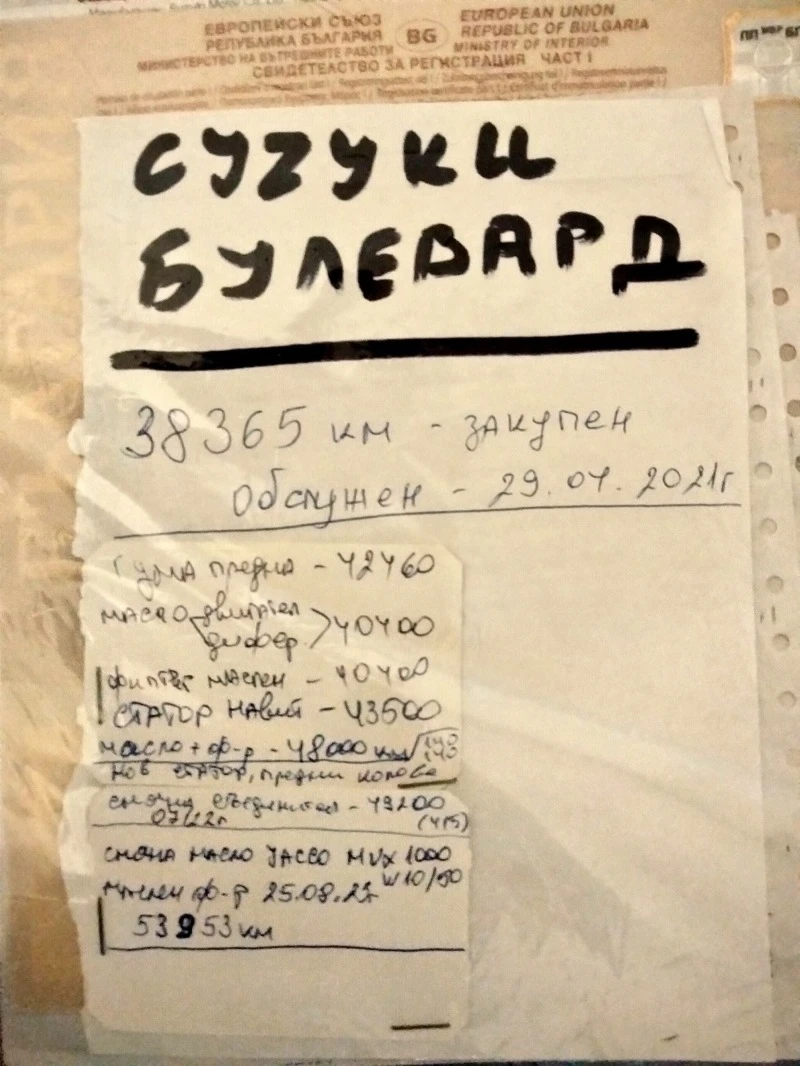 ЕВРОПЕЙСКИ СЪЮЗ
РЕПУБЛИКА БЪЛГАРИЯ
МИНИСТЕРСТВО НА ВЪТРЕШНИТЕ РАБОТИ
BG
EUROPEAN UNION
REPUBLIC OF BULGARIA
MINISTRY OF INTERIOR
СВИДЕТЕЛСТВО ЗА РЕГИСТРАЦИЯ ЧАСТ I
СУЗУКИ
БУЛЕВАРД
38365 км - закупен
Обслужен - 29.04.2021г
Гума предна - 42460
масло двигател
дифер > 40400
филтър маслен - 40400
СТАТОР НАВИТ - 43500
масло + ф-р - 48000 км
нов статор, предни колова
смяна съединител - 49200
07/22г
СМЯНА МАСЛО YACCO MVX 1000
W10/50
маслен ф-р 25.08.
53953 км